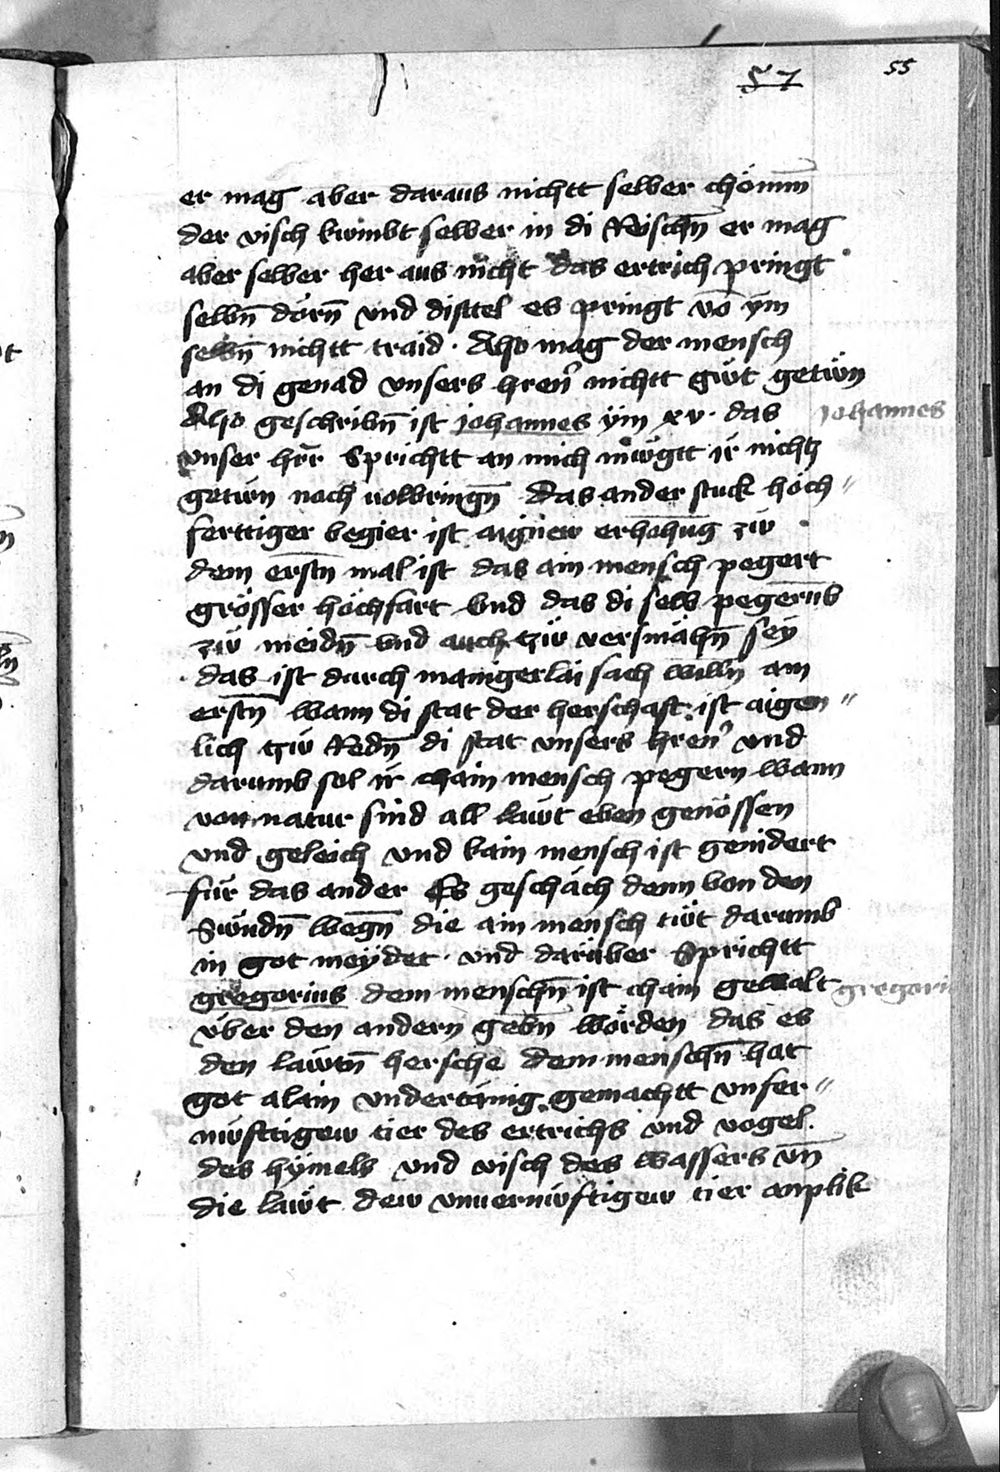 57 55
er mag aber daraus nichtt selber chömm̄
der visch kwmbt selber in di Rewschn̄ er mag
aber selber her aus nicht das ertrich pringt
selbn̄ dörn̄ vnd disttel es pringt vō ym
selbn̄ nichtt traid · Also mag der mensch
an di genad vnsers hren̄ nichtt gẅt getẅn
Also geschribn̄ ist johannes ÿm xv · das johannes
vnser hr̄r Sprichtt an mich mẅgtt ir nichtz
getẅn noch volbringn̄ Das ander stuck höch〃
ferttiger begier ist aignew erhohūg zẅ
dem erstn̄ mal ist das ain mensch pegert
grösser höchfart vnd das di selb pegerūb
zẅ meidn̄ vnd auch tzẅ versmähn̄ seÿ
das ist durch manigerlai sach willn̄ am
erstn̄ wann di stat der herschaft ist aigen〃
lich tzẅ Redn̄ di stat vnsers hren̄ vnd
darumb sol ir chain mensch pegern wann
von natur sind all lawt eben genössen
vnd geleich vnd kain mensch ist genidert
für das ander Es geschäch denn von den
Sẅndn̄ wegn̄ die ain mensch tẅt darumb
in got meÿdet · vnd darüber Sprichtt
gregorius dem menschn̄ ist chain gewalt gregori
vber den andern gebn̄ wörden das es
den laẅtn̄ hersche dem menschn̄ hat
got alain vndertänig gemachtt vnfer〃
nẅfttigew tier des ertrichs vnd vogel
des hÿmels vnd visch des wassers vn̄
die laẅt dew vnuernẅftigew tier anplik